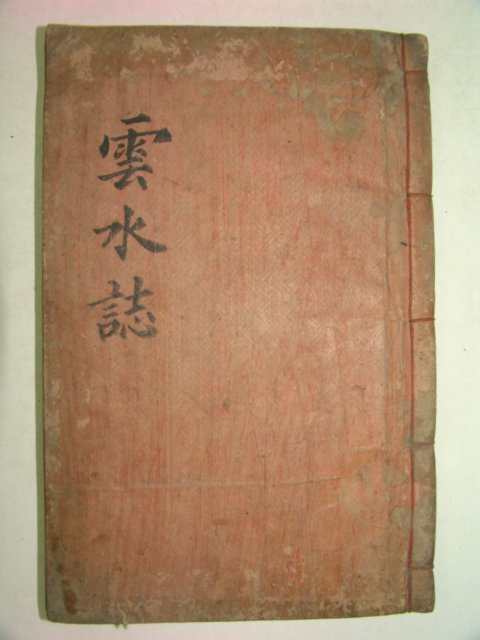 雲水誌